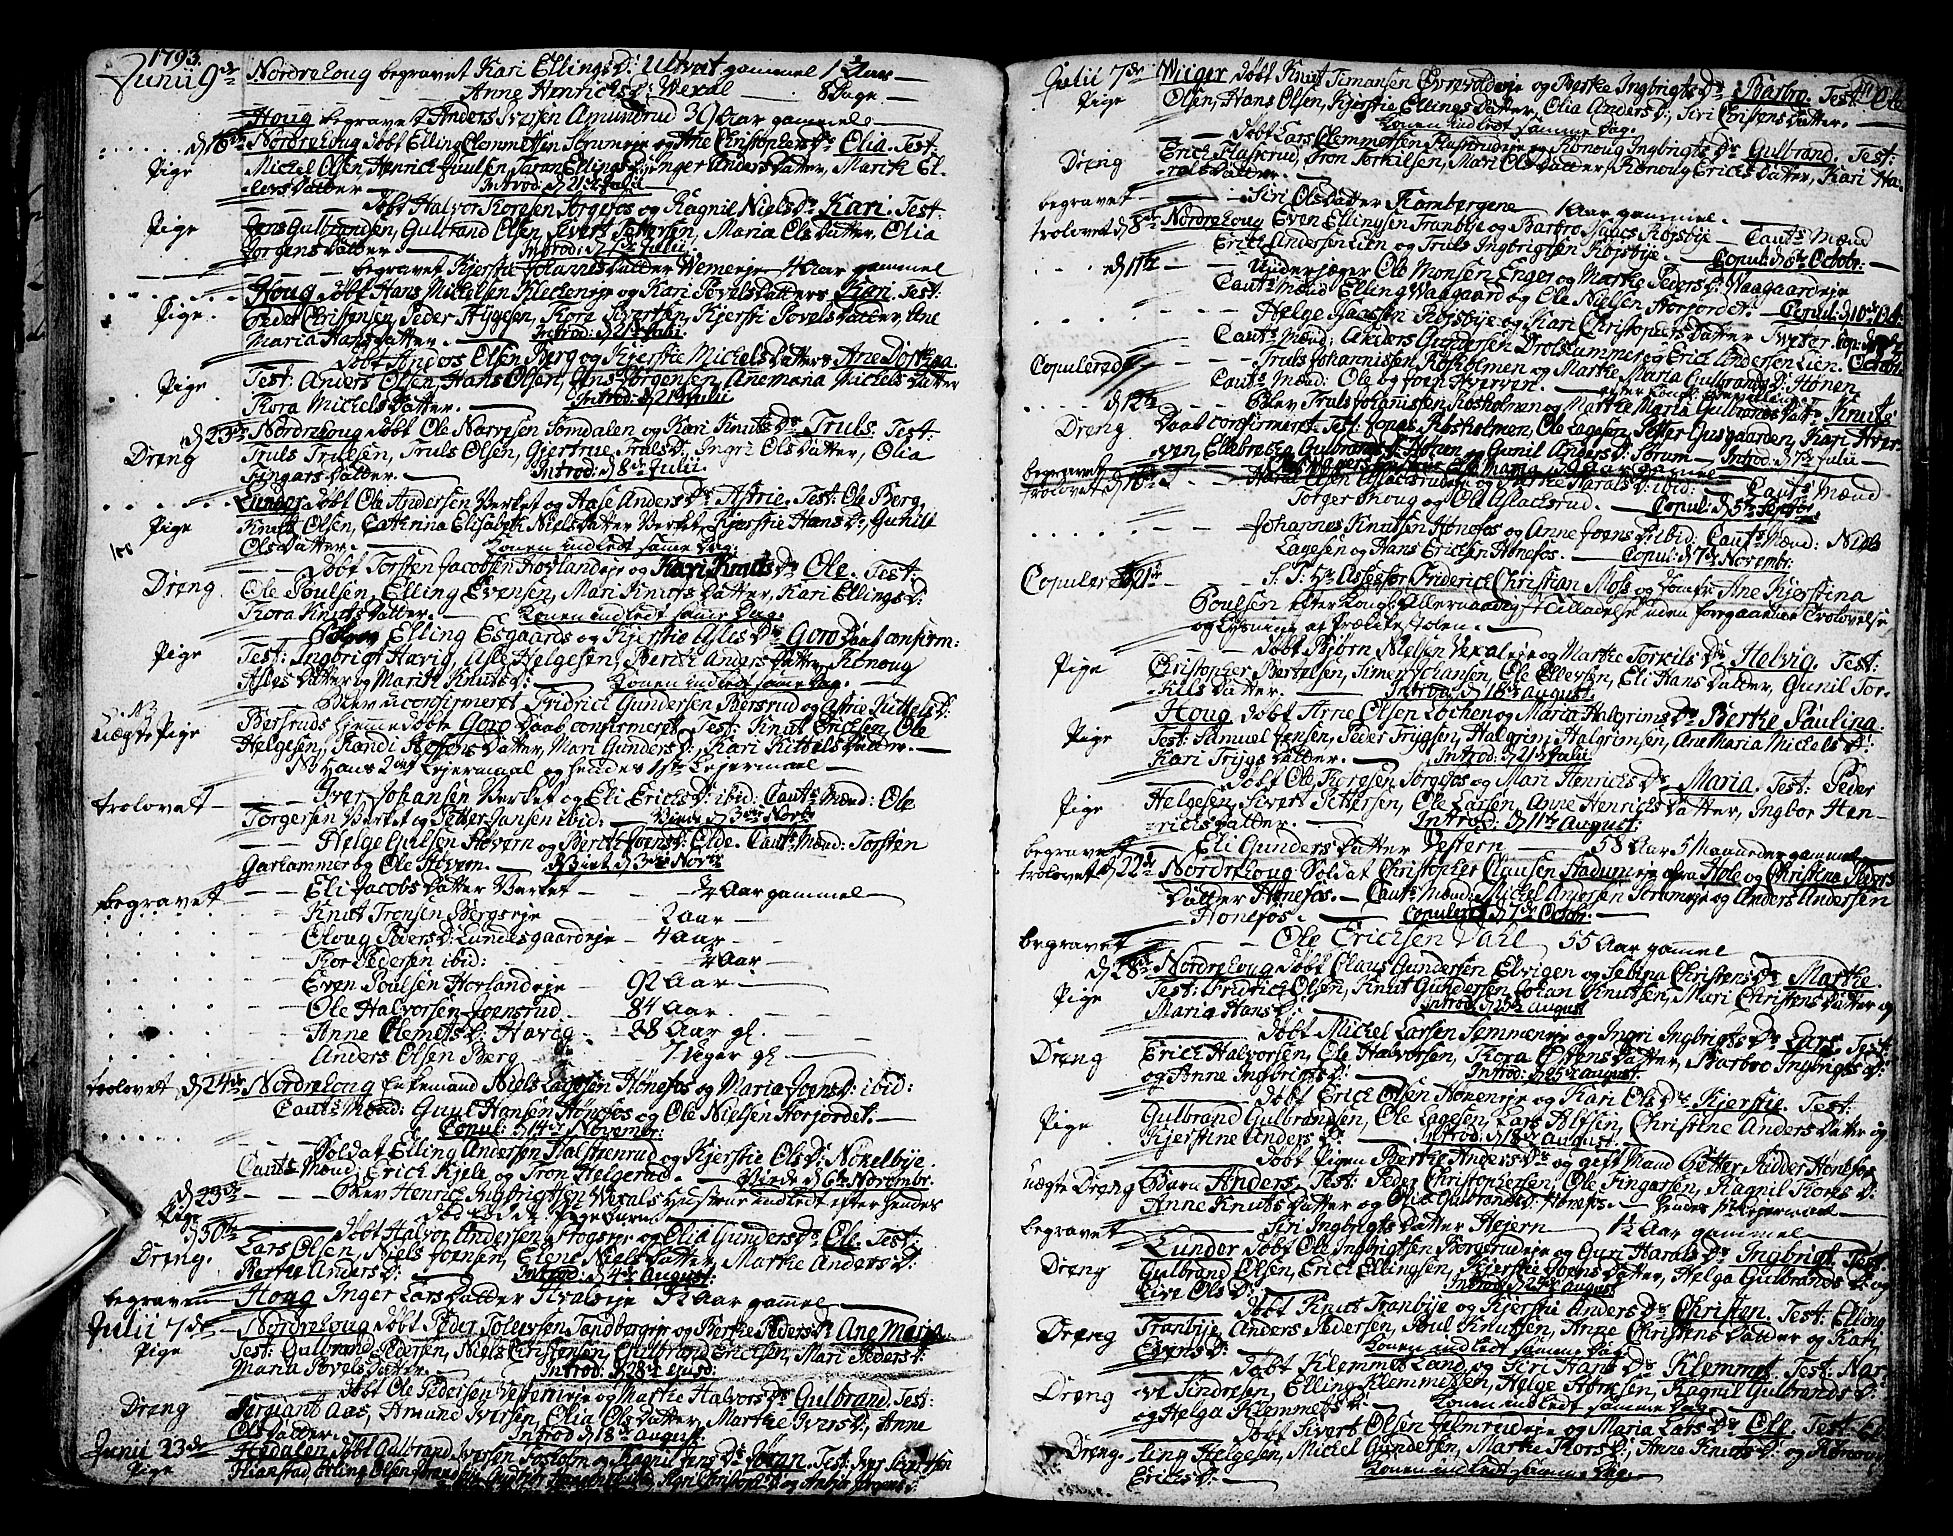 1793.
Junii 9de Nordrehoug begravet Kari Ellings D: Ultvet gammel 1 1/2 Aar
Anne Henrichs D: Wexal — 8 Dage
Houg begravet Anders Iversen Amundrud 39 Aar gammel
d 16de Nordrehoug døbt Elling Clemmetsen Sørumeje og Ane Christophers Dr Olia. Test:
Pige Michel Olsen, Henrich Juulsen, Taran Ellings D: Inger Anders Datter, Marthe El-
-lers Datter — Introd: d 21de Julii
døbt Halvor Koresen Sørgefos og Ragnil Niels Dr Kari. Test:
Pige Jens Gulbrandsen, Gulbrand Olsen, Sivert Pettersen, Maria Ols Datter, Olia
Jorgens Datter — Introd: d 7de Julii
begravet Kjerstie Johannes Datter Wemeeje 4 Aar gammel
Houg døbt Hans Michelsen Kleckeneje og Kari Povels Datters Kari. Test:
Pige Peder Christensen, Peder Trygesen, Kora Sivertsen, Kjersti Povels Datter, Ane
Maria Hans Datter — Introd: d 21de Juli
døbt Anders Olsen Berg og Kjerstie Michels Datters Ane Dorthea.
Pige Test: Anders Olsen, Hans Olsen, Hans Jorgensen, Ane Maria Michels Datter
Thora Michels Datter. — Introd: d 21de Julii
d 23de Nordrehoug døbt Ole Narvesen Somdalen og Kari Knuts Dr Truls. Test:
Dreng Truls Trulsen, Truls Olsen, Gjertrue Truls D: Ingri Ols Datter, Olia
Fingars Datter. — Introd: d 8de Julii
Lunder døbt Ole Andersen Verket og Aase Anders Dr Astrie. Test: Ole Berg,
Pige Knut Olsen, Cathrina Elisabeth Niels Datter Verket, Kjerstie Hans D: Gunild
Ols Datter. — Konen indledt same Dag.
døbt Torsten Jacobsen Hovlandeje og Kari Knuts Dr Ole. Test:
Dreng Ole Poulsen, Elling Evensen, Mari Knuts Datter, Kari Ellings D:
Thora Knuts Datter. — Konen indledt same Dag.
Blev Elling Esgaards og Kjerstie Nils Dr Goro Daab confirm:
Pige Test: Ingbrigt Hævig, Asle Helgesen, Berthe Anders Datter, Ronoug
Asles Datter og Marit Knuts D: — Konen indledt same Dag.
Blev uconfirmeret Fridrich Gundersen Bersrud og Astrie Kittels D:
uægte Pige Bersruds hjemmedøbte Goro Daab confirmeret. Test: Knut Erichsen, Ole
Helgesen, Randi Hofsens Datter, Mari Gunders D: Kari Kittels Datter. —
NB Hans 2det Lejermaal og hendes 1ste Lejermaal —
trolovet — Iver Johansen Verket og Eli Erichs D: ibid: Caut: Mænd: Ole
Torgersen Verket og Peter Jansen ibid: — Viede d 3die Novbr
Helge Guulsen Hovern og Berthe Joens D: Elde. Caut: Mænd: Torsten
Garhammer og Ole Hovern. — Viet d 3die Novbr
begravet — Eli Jacobs Datter Verket — 3/4 Aar gammel
Knut Tronsen Bergseje — 2 Aar —
Oloug Peders D: Lundesgaardeje — 4 Aar —
Thor Pedersen ibid: — 3/4 Aar —
Even Poulsen Hovlandeje — 92 Aar —
Ole Halvorsen Joensrud — 84 Aar —
Anne Clemets D: Havig — 28 Aar gl. —
Anders Olsen Berg — 7 Uger gl —
trolovet d 24de Nordrehoug Enkemand Niels Lagesen Hønefos og Maria Joens D: ibid:
Caut: Mænd: Guul Hansen Hønefos og Ole Nielsen Horjordet. —
Copul: d 14de Novembr:
Soldat Elling Andersen Halstenrud og Kjerstie Ols D: Nokelbye.
Caut: Mænd: Erich Kjele og Tron Helgerud. — Viede d 6te Novembr.
d 23de — Blev Henric Ingbrigtsen Wexals Hustrue indledt efter hendes
Pige død fød: Pigebarn. —
d 30te — døbt Halvor Andersen Skogseje og Olia Gunders Dr Ole. Test:
Dreng. Lars Olsen, Niels Joensen, Elene Niels Datter, Marthe Anders D:
Berthe Anders D: — Introd: d 4de August:
begraven Houg Inger Lars Datter Hvalseje 3 1/2 Aar gammel
Julii 7de Nordrehoug døbt Peder Tolevsen Tandbergeje og Berthe Peders Dr Ane Maria
Pige Test: Gulbrand Pedersen, Niels Christensen, Gulbrand Erichsen, Mari Peders D:
Maria Povels Datter. — Introd: d 28de ejusd:
døbt Ole Pedersen Vesterneje og Marthe Halvors Dr Gulbrand. Test:
Dreng Sergiant Aas, Amund Iversen, Olia Ols Datter, Marthe Ivers D:, Anne
Ols Datter. — Introd: d 18de August.
Junii 23de Hedalen døbt Gulbrand Iversen Fosholm og Ragnil Jens Dr Jøran. Test: Iver Sivertsen
Pige
Julii 7de Wiiger døbt Knut Simensen Everwoldeje og Berthe Ingbrigts Dr Barbro. Test: Ole
Pige Olsen, Hans Olsen, Kjerstie Ellings Datter, Olia Anders D:, Siri Christens Datter. —
Konen indledt samme Dag.
døbt Lars Clemmetsen Flaskrudeje og Ronoug Ingbrigts Dr Gulbrand. Test:
Dreng Erich Flaskerud, Tron Torkilsen, Mari Ols Datter, Ronoug Erichs Datter, Kari Ha-
-rals Datter. —
begravet — Siri Ols Datter Rambergene — 1 Aar gammel. —
trolovet d 8de Nordrehoug Even Ellingsen Tranbye og Barbro Mans Røjsbye — Caut: Mænd
Erich Andersen Lien og Truls Ingbrigtsen Røjsbye. — Copul: d 6te Octobr: —
d 11te — Underjæger Ole Monsen Enger og Marthe Peders D: Waagaardeje
Caut: Mænd Elling Waagaard og Ole Nielsen Horjordet. — Copul: d 10de Octob.
Helge Haagensen Røjsbye og Kari Christophers Datter Tveter Cop: d
Caut: Mænd: Anders Gundersen Drolshammer og Erich Andersen Lien. Octobr
Copulerede — Truls Johannissen Roskolmen og Marthe Maria Gulbrands D: Honen
Caut: Mænd: Ole og Joen Hverven. — efter Kongl: Bevilling
d 12te — Blev Truls Johanissen Roskolmen og Marthe Maria Gulbrands Datrs Knuts
Dreng Daab confirmeret. Test: Jonas Roskolmen, Ole Lagesen, Petter Gusgaarden, Kari Hver-
-ven, Ellebretha Gulbrands D: Honen og Gunil Anders D: Sørum — Introd: d 7de Julii —
begravet
trolovet d 16de — Haral Olsen Aslacksrudeje og Marthe Harals D: ibid: — Caut: Mænd
Torger Skoug og Ole Aslachsrud. — Copul: d 5te Septbr
Johannes Knutsen Hønefos og Anne Joens D: ibid: Caut: Mænd: Niels
Lagesen og Hans Erichsen Hønefos. — Copul: d 7de Novembr:
Copuleret d 21de — S: T: Hr Assessor Friderich Christian Mose og Jomfr Ane Kjerstina
Poulsen efter Kongl: Allernaadigst Tilladelse uden foregaaende Trolovelse
og Lysning af Prækestolen. —
døbt Bjørn Nielsen Vexaleje og Marthe Torkils Dr Helvig. Test:
Pige Christopher Bertelsen, Simen Johansen, Ole Ellevsen, Eli Hans Datter, Gunil Tor-
-kils Datter. — Introd: d 18de August.
Houg døbt Arne Olsen Lochen og Maria Halgrims Dr Berthe Paulina.
Pige Test: Samuel Jensen, Peder Trygsen, Halgrim Halgrimsen, Ane Maria Michels D:
Kari Trygs Datter. — Introd: d 21de Julii
døbt Ole Torgesen Sorgefos og Mari Henrichs Dr Maria. Test: Peder
Pige Helgesen, Sivert Pettersen, Ole Larsen, Anne Henrichs Datter, Ingbor Hen-
-richs Datter. — Introd: d 11te August.
begravet — Eli Gunders Datter Vestern — 58 Aar 5 Maaneder gammel
trolovet d 22de Nordrehoug Soldat Christopher Clausen Stadum fra Hole og Christina Peders
Datter Hønefos. — Caut: Mænd: Michel Andersen Sorumeje og Anders Andersen
Hønefos. — Copuleret d 7de Octobr: —
begravet — Ole Erichsen Dahl 55 Aar gammel
d 28de Nordrehoug døbt Claus Gundersen Elvigen og Sebina Christens Dr Marthe.
Pige Test: Fridrich Olsen, Knut Gundersen, Johan Knutsen, Mari Christens Datter og
Maria Hans D: Introd: d 25de August
døbt Michel Larsen Sammeneje og Ingri Ingbrigts Dr Lars. Test:
Dreng Erich Halvorsen, Ole Halvorsen, Thora Christens Datter, Barbro Ingbrigts D:
og Anne Ingbrigts D: Introd: d 25de August.
døbt Erich Olsen Honeneje og Kari Ols Dr Kjerstie. Test:
Pige Gulbrand Gulbrandsen, Ole Lagesen, Lars Alfsin, Christine Anders Datter og
Kjerstine Anders D: — Introd: d 18de August.
døbt Pigen Berthe Anders Dr og gift Mand Petter Ridder Hønefos
uægte Dreng Ebarn Anders. Test: Peder Christophersen, Ole Fingarsen, Ragnil Thores D:
Anne Knuts Datter og Olia Gulbrands D: Hønefos. — hendes 1ste Lejermaal —
begravet — Siri Ingbrigts Datter Hejern — 1 1/2 Aar gammel —
Lunder døbt Ole Ingbrigtsen Bergsrudeje og Guri Harals Dr Ingbrigt. Test:
Dreng Gulbrand Olsen, Erich Ellingsen, Kjerstie Joens Datter, Helga Gulbrands D: og
Live Ols D: Introd: d 25de August
døbt Knut Tranbye og Kjerstie Anders Dr Christen. Test: Elling
Dreng Tranbye, Anders Pedersen, Poul Knutsen, Anne Christens Datter og Kari
Evens D: Konen indledt samme Dag.
døbt Klemmet Land og Siri Hans Dr Klemmet. Test: Nar-
Dreng -ve Sindresen, Elling Klemmetsen, Helge Hornesen, Ragnil Gulbrands D:
og Helga Klemmets D: Konen indledt samme Dag.
døbt Sivert Olsen Jelmrudeje og Maria Lars Dr Ole. Test: El-
Dreng -ling Helgesen, Michel Gundersen, Marthe Thors D:, Anne Knuts D: og Ronoug
Erichs D: — Konen indledt samme Dag.